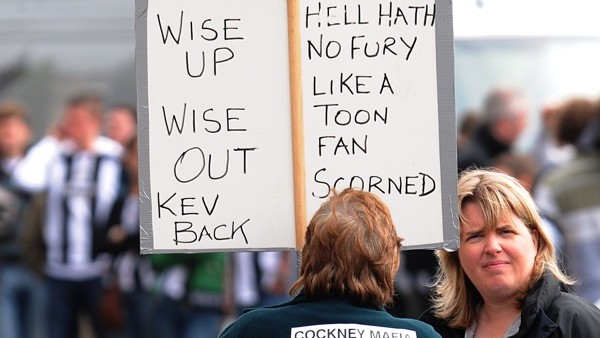 WISE
UP
WISE
OUT
KEV
BACK
HELL HATH
NO FURY
LIKE A
TOON
FAN
SCORNED
COCKNEY MAFIA